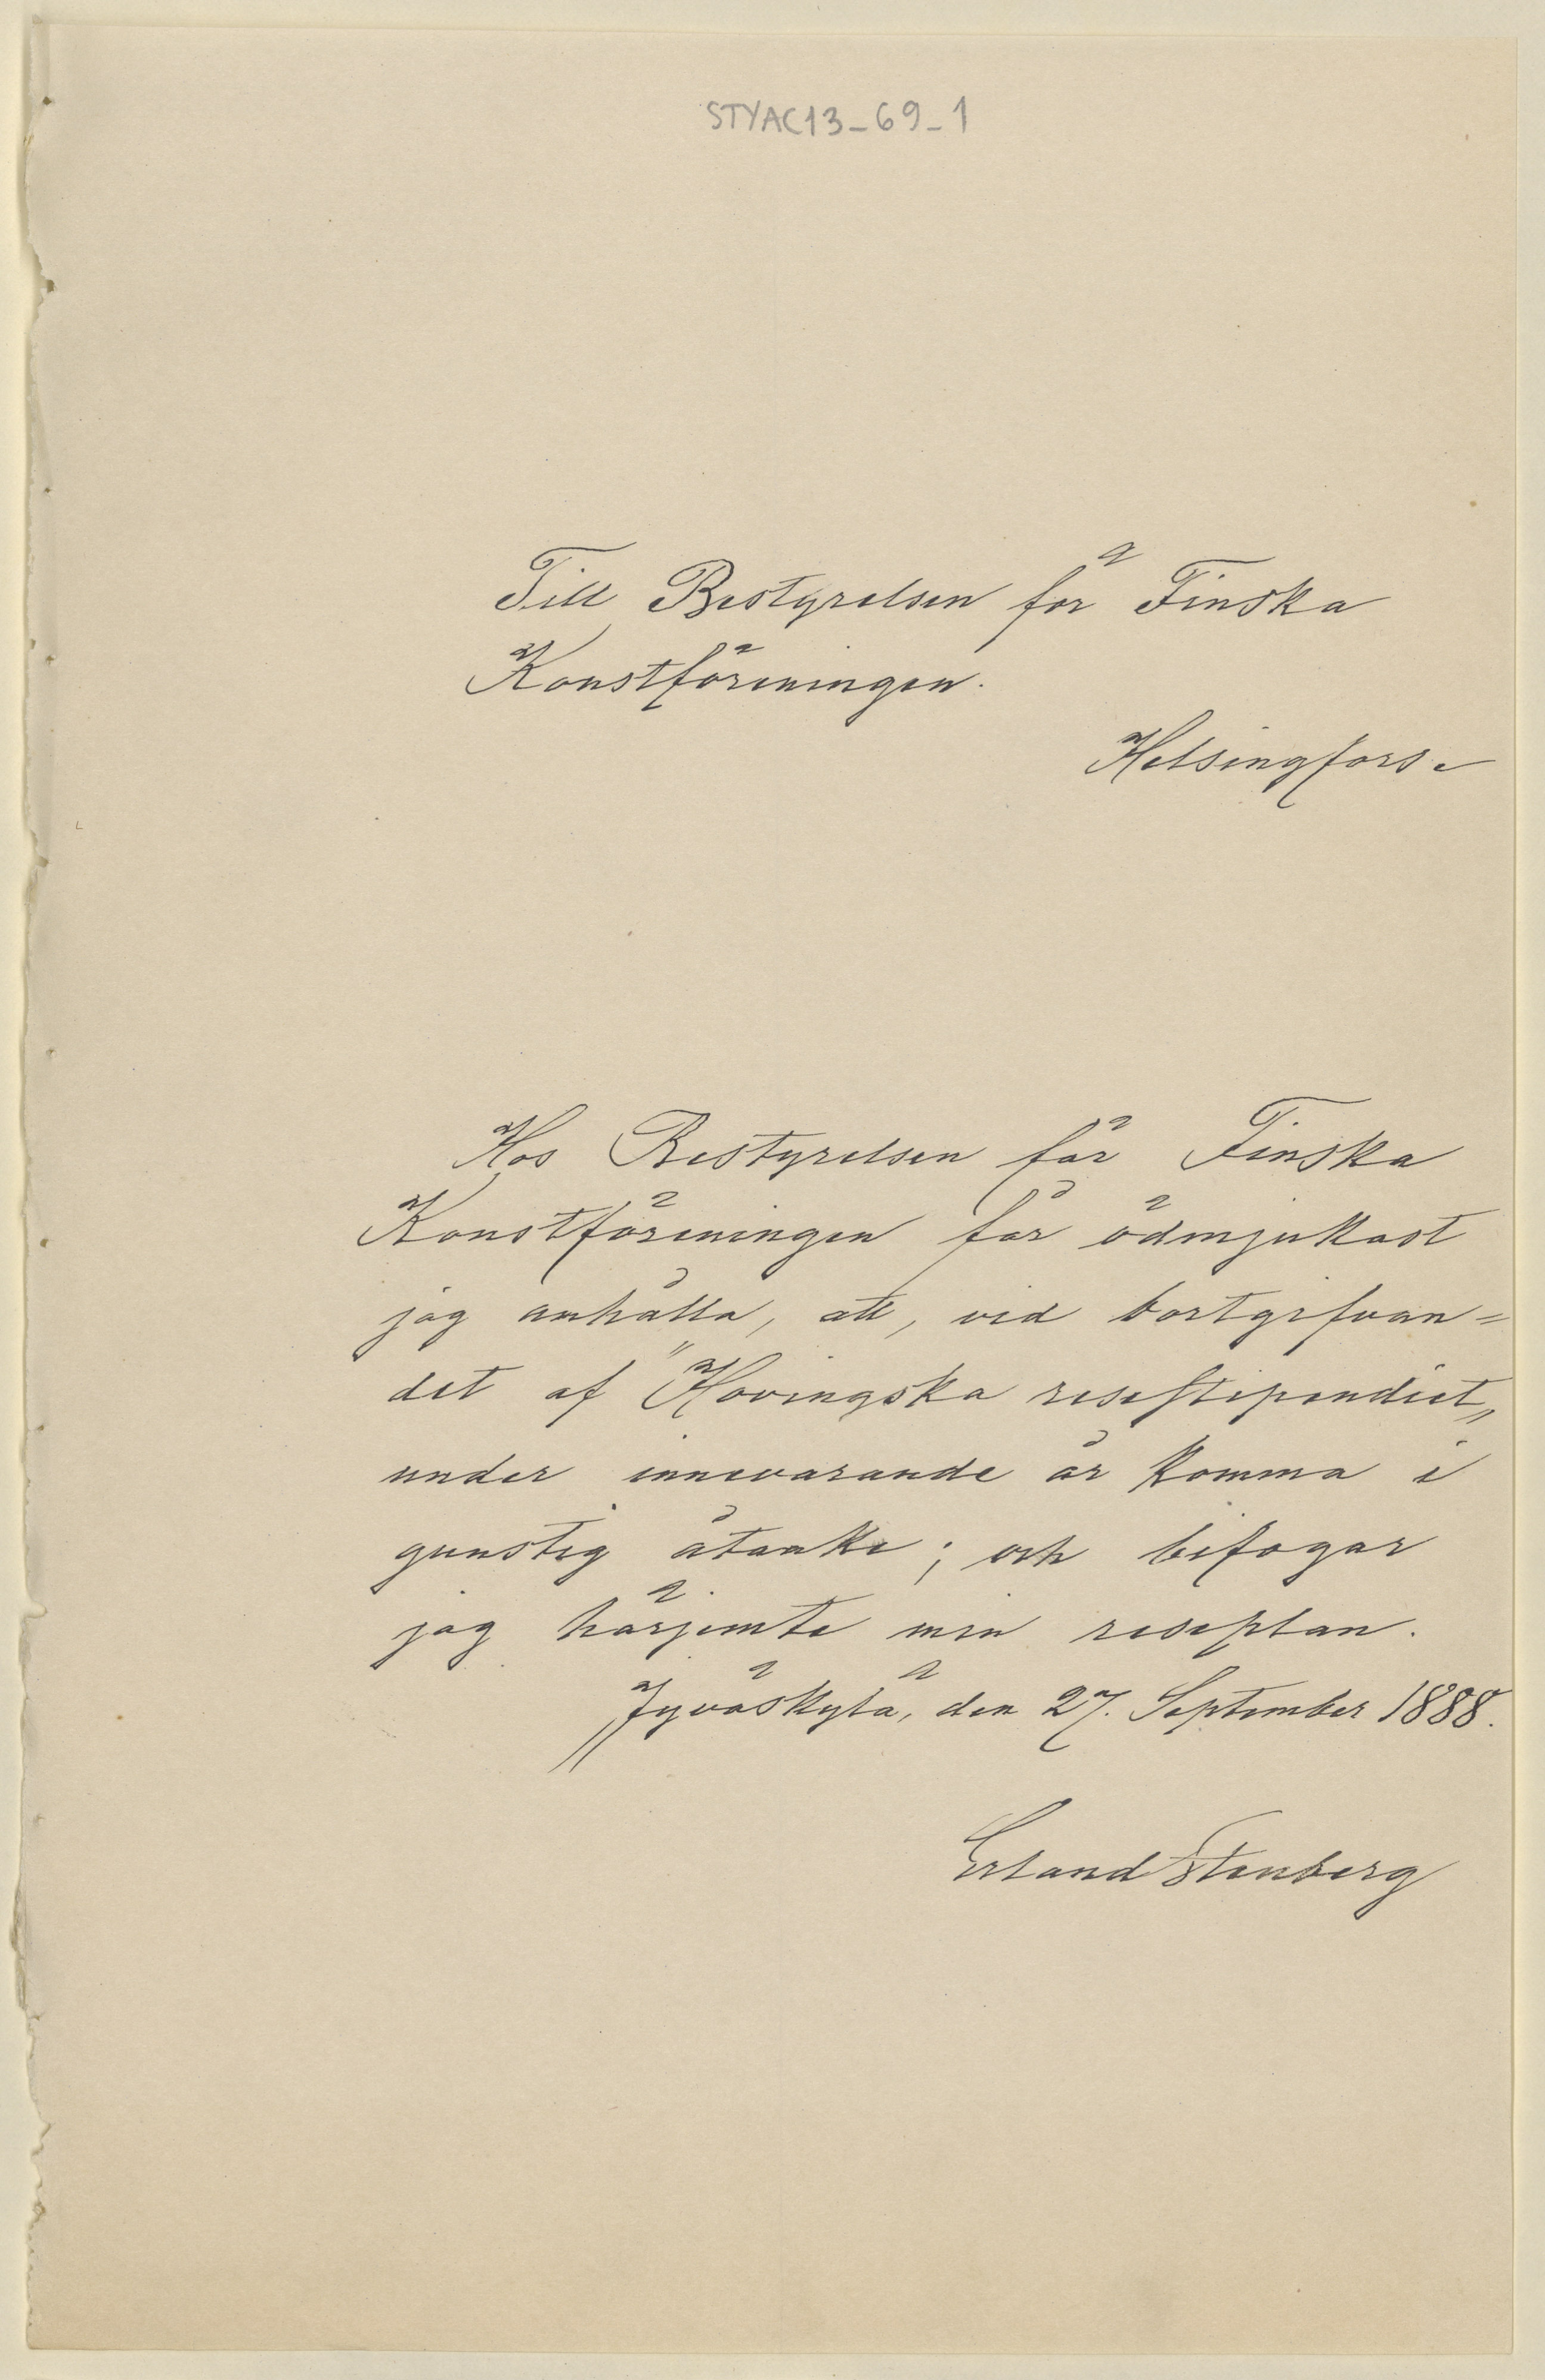 STYAC13_69_1
Till Bestyrelsen för Finska
Konstföreningen.
Helsingfors.
Hos Bestyrelsen för Finska
Konstföreningen får ödmjukast
jag anhålla, att, vid bortgifvan=
det af "Hovingska resestipendiet„
under innevarande år komma i
gunstig åtanke; och bifogar
jag härjemte min reseplan.
Jyväskylä, den 27. September 1888.
Erland Stenberg